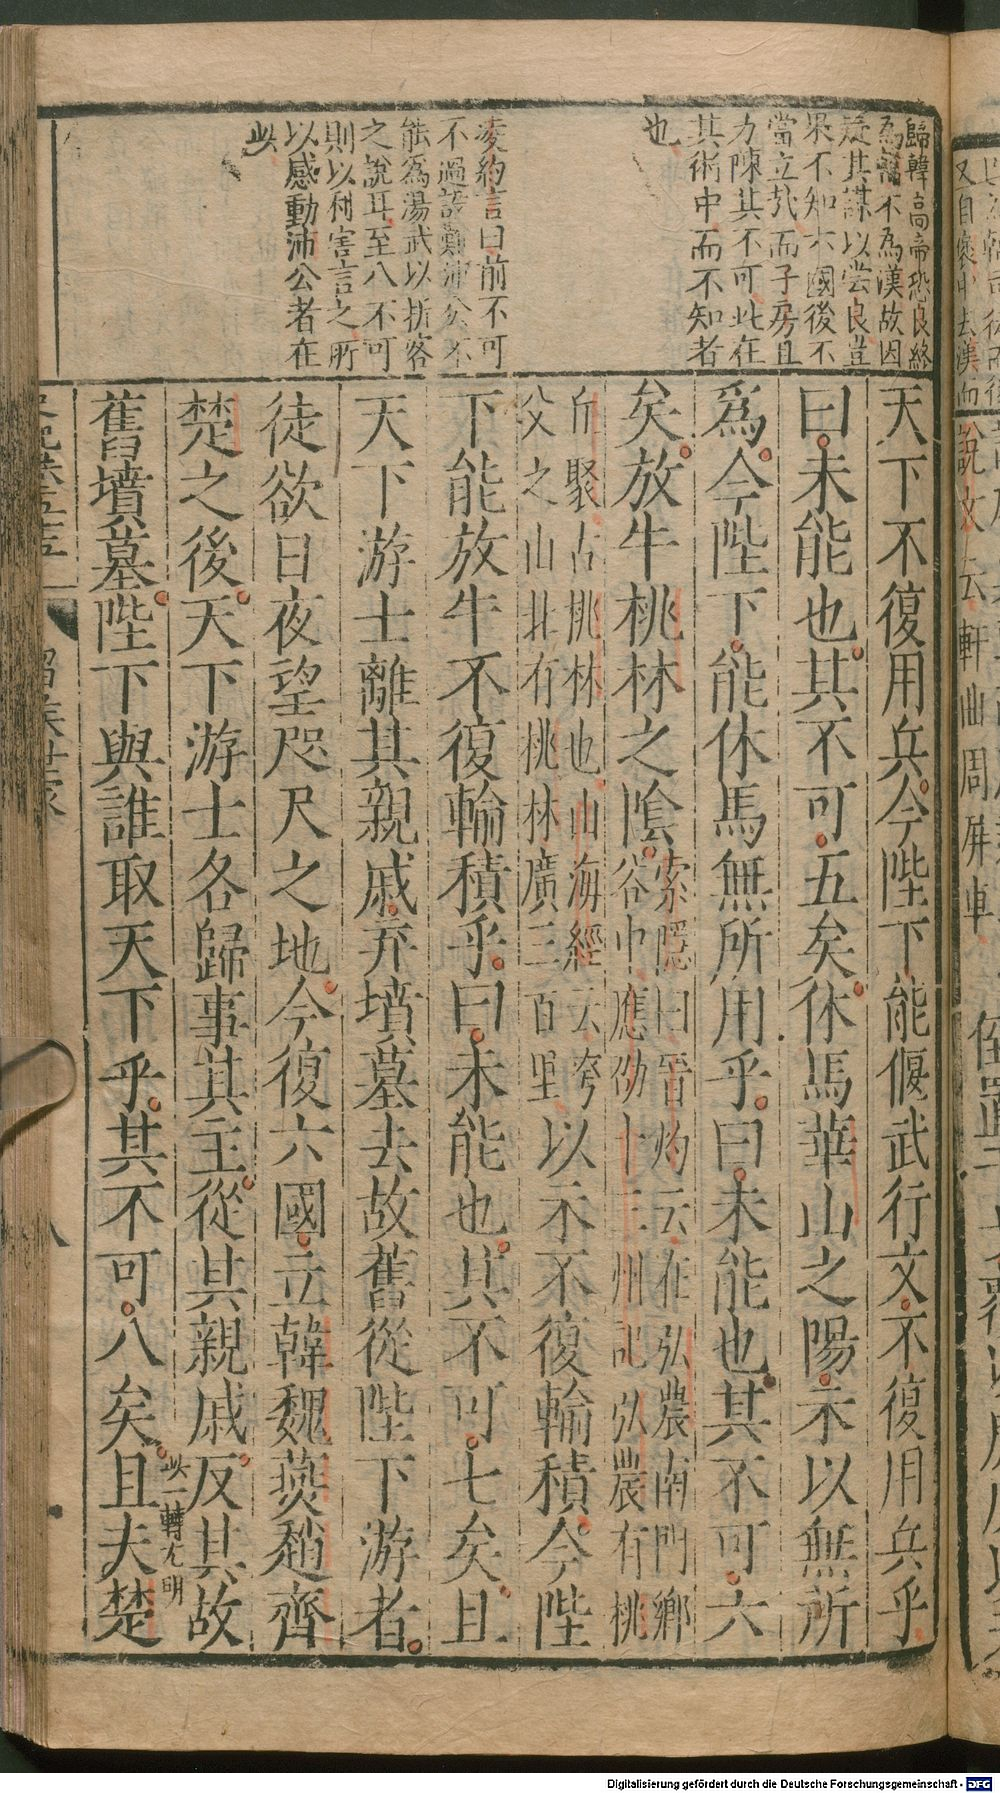 歸韓高帝恐良終
爲韓不爲漢故因
疑其謀以嘗良豈
果不知六國後不
當立哉而子房且
力陳其不可此在
其術中而不知者
也
凌約言曰前不可
不過設難沛公不
能爲湯武以折客
之說耳至八不可
則以利害言之所
以感動沛公者在
此
天下不復用兵今陛下能偃武行文不復用兵乎
曰未能也其不可五矣休馬華山之陽示以無所
爲今陛下能休馬無所用乎曰未能也其不可六
矣放牛桃林之陰
索隱曰晉灼云在弘農南門鄉
谷中應劭十三州記弘農有桃
丘聚古桃林也山海經云夸
父之山北有桃林廣三百里
以示不復輸積今陛
下能放牛不復輸積乎曰未能也其不可七矣且
天下游士離其親戚弃墳墓去故舊從陛下游者
徒欲日夜望咫尺之地今復六國立韓魏燕趙齊
楚之後天下游士各歸事其主從其親戚反其故
舊墳墓陛下與誰取天下乎其不可八矣且夫楚
此一轉尤明
八
說文云軒曲周屏車
Digitalisierung gefördert durch die Deutsche Forschungsgemeinschaft - DFG